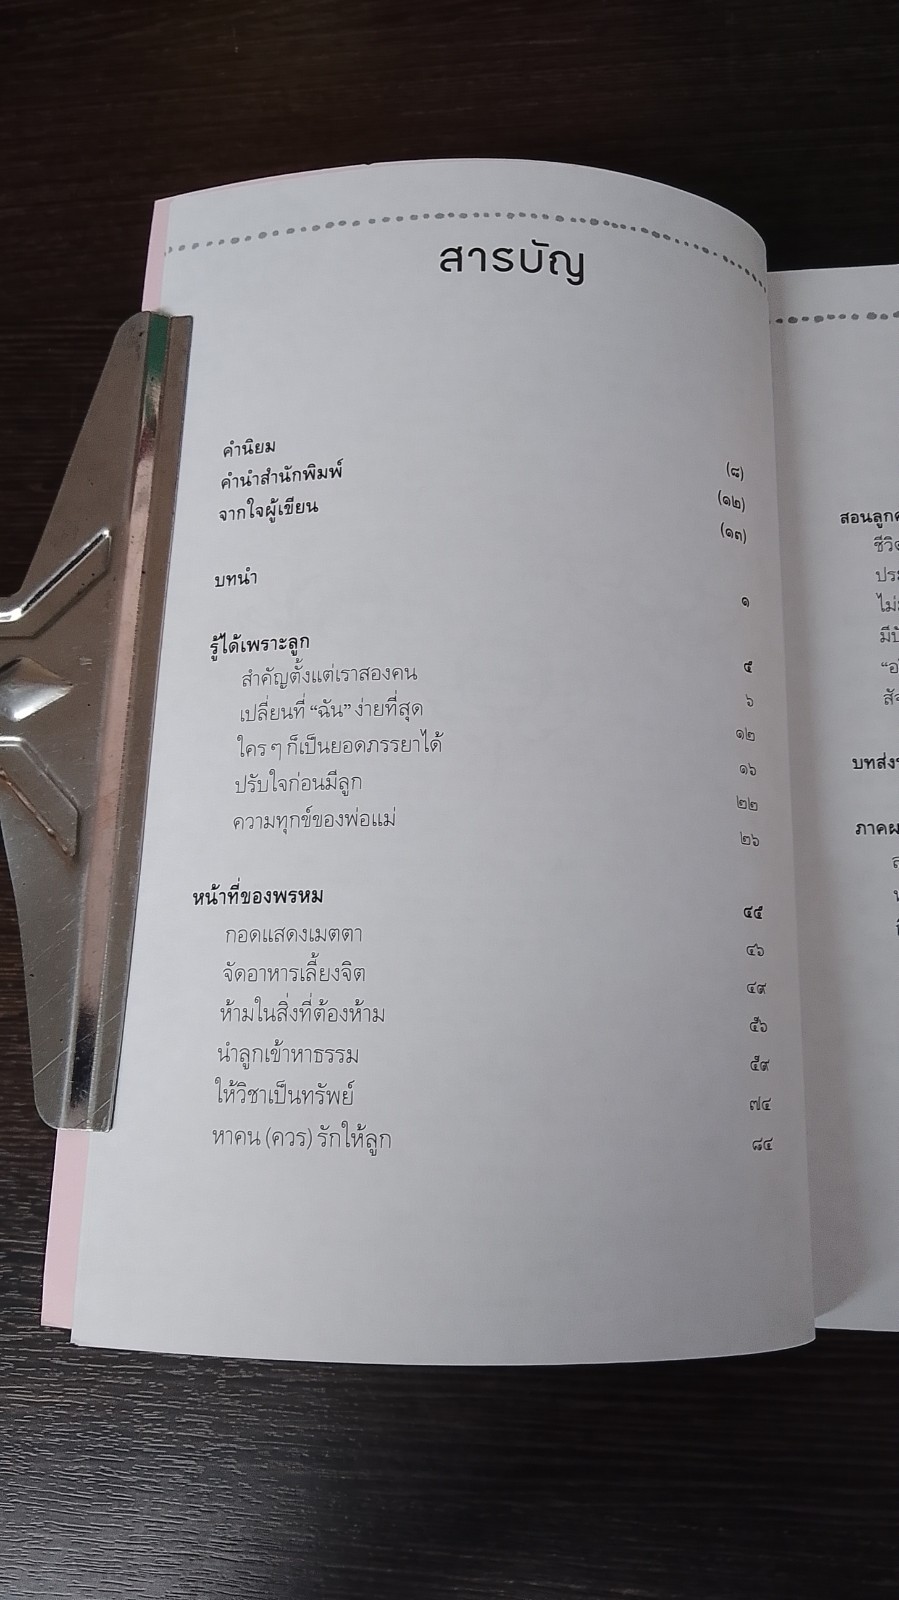 สารบัญ
คำนิยม (๘)
คำนำสำนักพิมพ์ (๑๒)
จากใจผู้เขียน (๑๓)
บทนำ ๑
รู้ได้เพราะลูก ๕
สำคัญตั้งแต่เราสองคน ๖
เปลี่ยนที่ “ฉัน” ง่ายที่สุด ๑๒
ใคร ๆ ก็เป็นยอดภรรยาได้ ๑๖
ปรับใจก่อนมีลูก ๒๒
ความทุกข์ของพ่อแม่ ๒๖
หน้าที่ของพรหม ๔๕
กอดแสดงเมตตา ๔๖
จัดอาหารเลี้ยงจิต ๔๙
ห้ามในสิ่งที่ต้องห้าม ๕๖
นำลูกเข้าหาธรรม ๕๙
ให้วิชาเป็นทรัพย์ ๗๔
หาคน (ควร) รักให้ลูก ๘๔
สอนลูก